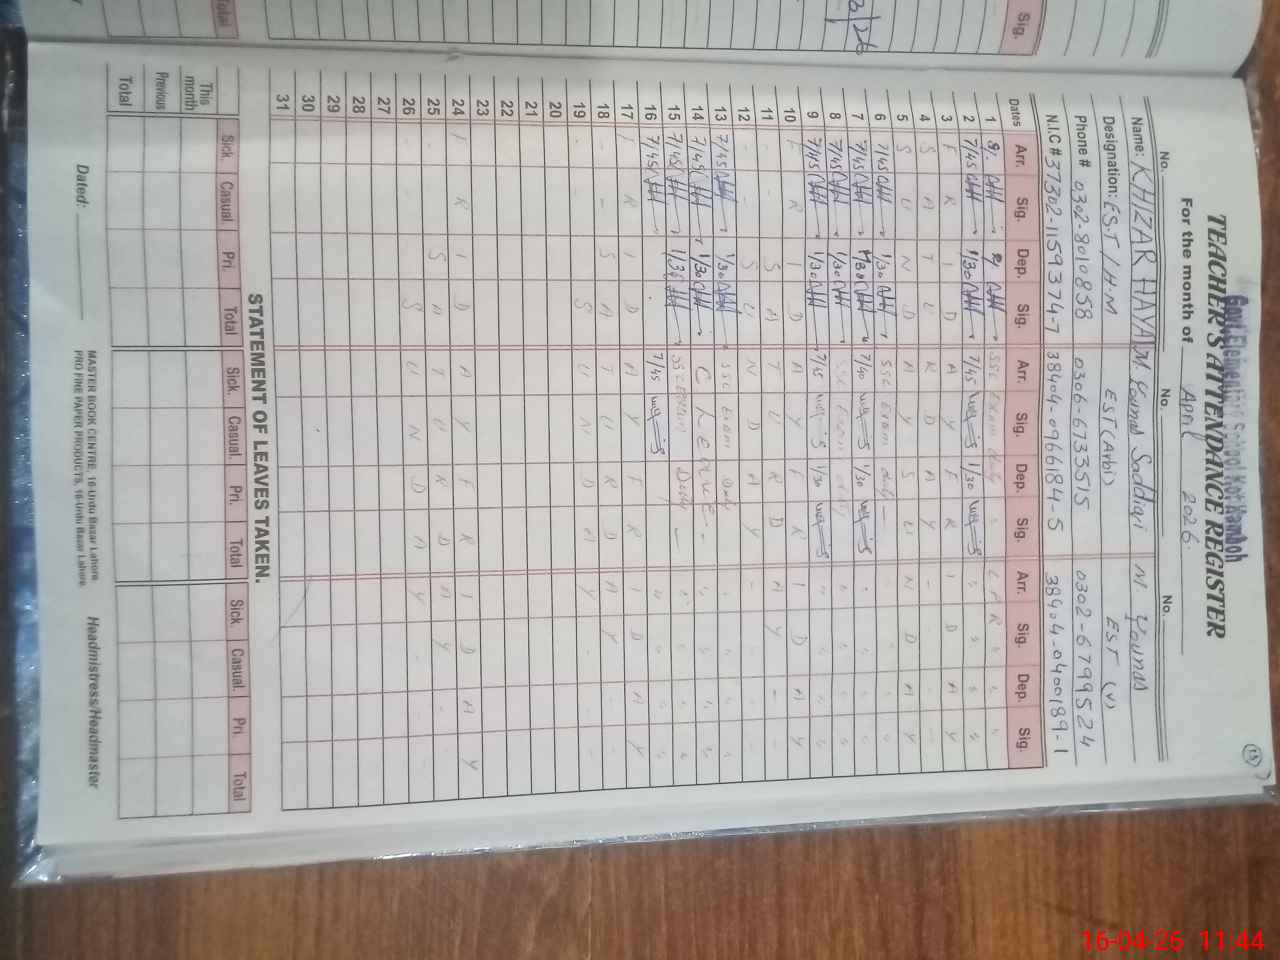 Govt. Elementary School Kot Kamboh
TEACHER'S ATTENDANCE REGISTER
For the month of April 2026
No. No. No.
Name: KHIZAR HAYAT M. Younas Saddiqi M. Younas
Designation: E.S.T / H.M EST (Arbi) EST (V)
Phone # 0302-8010858 0306-6733515 0302-6799524
N.I.C # 37302-1159374-7 38404-0966184-5 38404-0400189-1
Dates Arr. Sig. Dep. Sig. Arr. Sig. Dep. Sig. Arr. Sig. Dep. Sig.
1 SSC Exam duty
2 7/45 1/30 7/45 1/30
3 F R I D A Y F R I D A Y
4 S A T U R D A Y
5 S U N D A Y S U N D A Y
6 7/45 1/30 SSC Exam duty
7 7/45 1/30 7/40 1/30
8 7/45 1/30 SSC Exam duty
9 7/45 1/30 7/45 1/30
10 F R I D A Y F R I D A Y
11 S A T U R D A Y
12 S U N D A Y
13 7/45 1/30 SSC Exam Duty
14 7/45 1/30 C Leave
15 7/45 1/30 SSC Exam Duty
16 7/45 7/45
17 F R I D A Y F R I D A Y
18 S A T U R D A Y
19 S U N D A Y
20
21
22
23
24 F R I D A Y F R I D A Y
25 S A T U R D A Y
26 S U N D A Y
27
28
29
30
31
STATEMENT OF LEAVES TAKEN.
Sick. Casual. Pri. Total Sick. Casual. Pri. Total Sick. Casual. Pri Total
This month
Previous
Total
Dated:
MASTER BOOK CENTRE, 16-Urdu Bazar Lahore.
PRO FINE PAPER PRODUCTS, 16-Urdu Bazar Lahore.
Headmistress/Headmaster
Total
Sig.
16-04-26 11:44